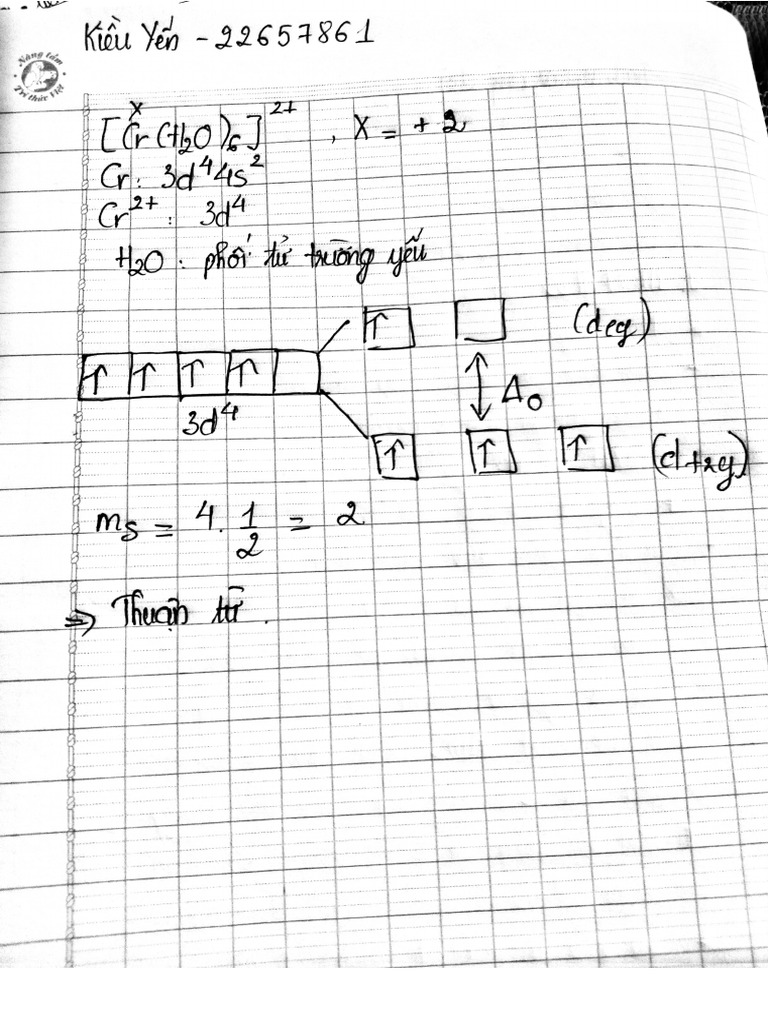 Kiều Yến - 22657861
Nâng tầm
Tri thức Việt
x
[Cr(H2O)6]2+ , x = +2
Cr: 3d4 4s2
Cr2+: 3d4
H2O: phối tử trường yếu
↑ (deg)
↑ ↑ ↑ ↑ ↕ Δo
3d4
↑ ↑ ↑ (dt2g)
ms = 4. 1/2 = 2
=> Thuận từ.